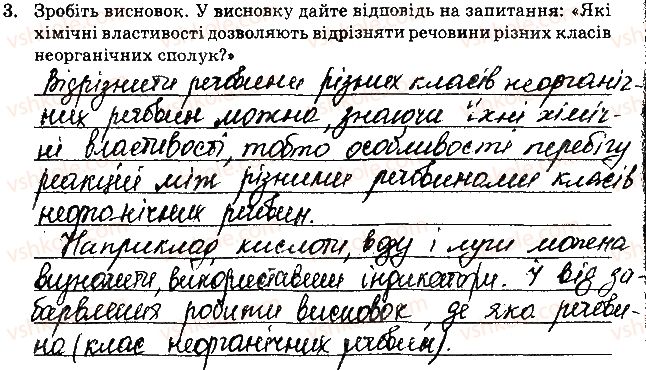 3. Зробіть висновок. У висновку дайте відповідь на запитання: «Які
хімічні властивості дозволяють відрізняти речовини різних класів
неорганічних сполук?»
Відрізнити речовини різних класів неорганіч-
них речовин можна, знаючи їхні хіміч-
ні властивості, тобто особливості перебігу
реакцій між різними речовинами класів
неорганічних речовин.
Наприклад, кислоти, воду і луги можна
визначити, використавши індикатори. І від за-
барвлення робити висновок, де яка речови-
на (клас неорганічних речовин).